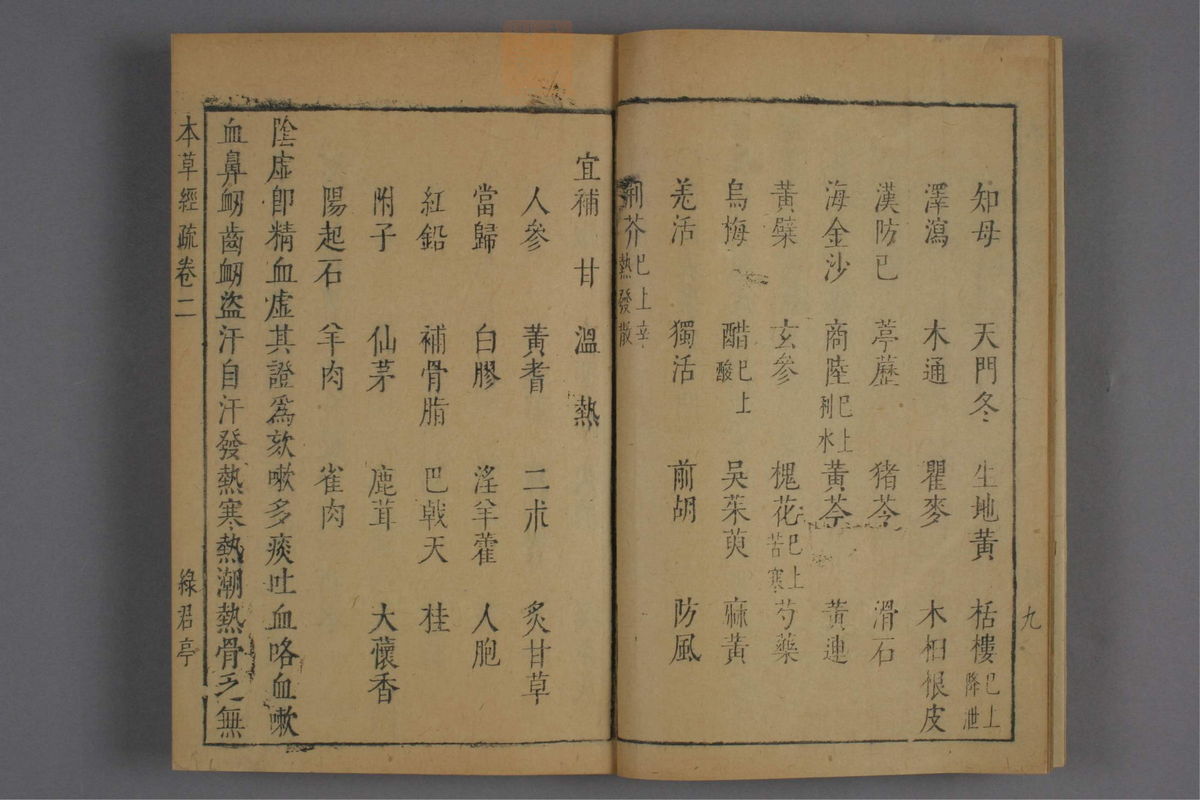 九
知母 天門冬 生地黃 栝樓已上降泄
澤瀉 木通 瞿麥 木相根皮
漢防已 葶藶 猪苓 滑石
海金沙 商陸已上利水 黃芩 黃連
黃檗 玄參 槐花已上苦寒 芍藥
烏梅 醋已上酸 吳茱萸 麻黃
羌活 獨活 前胡 防風
荊芥已上辛熱發散
宜補甘溫熱
人參 黃耆 二朮 炙甘草
當歸 白膠 淫羊藿 人胞
紅鉛 補骨脂 巴戟天 桂
附子 仙茅 鹿茸 大懷香
陽起石 羊肉 雀肉
陰虛即精血虛其證為欬嗽多痰吐血咯血嗽
血鼻衂齒衂盜汗自汗發熱寒熱潮熱骨乏無
本草經疏卷二 綠君亭